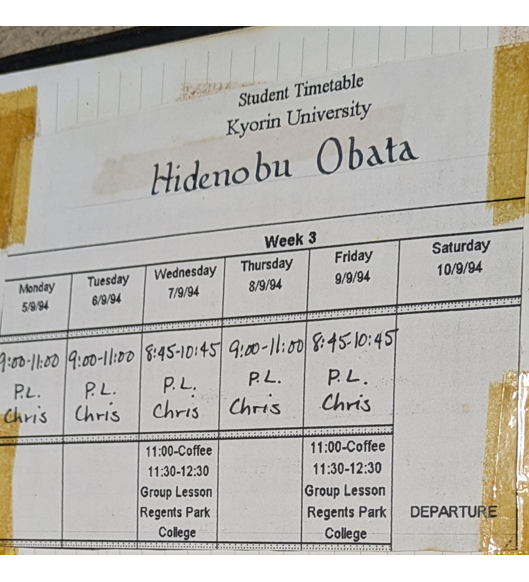 Student Timetable
Kyorin University
Hidenobu Obata
Week 3
Monday Tuesday Wednesday Thursday Friday Saturday
5/9/94 6/9/94 7/9/94 8/9/94 9/9/94 10/9/94
9:00-11:00 9:00-11:00 8:45-10:45 9:00-11:00 8:45-10:45
P.L. P.L. P.L. P.L. P.L.
Chris Chris Chris Chris Chris
11:00-Coffee 11:00-Coffee
11:30-12:30 11:30-12:30
Group Lesson Group Lesson
Regents Park Regents Park DEPARTURE
College College